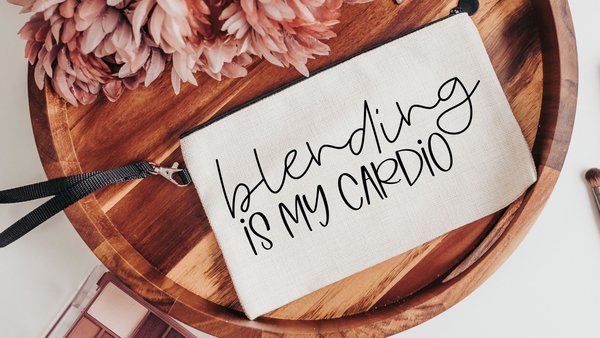 blending
iS MY CARDiO